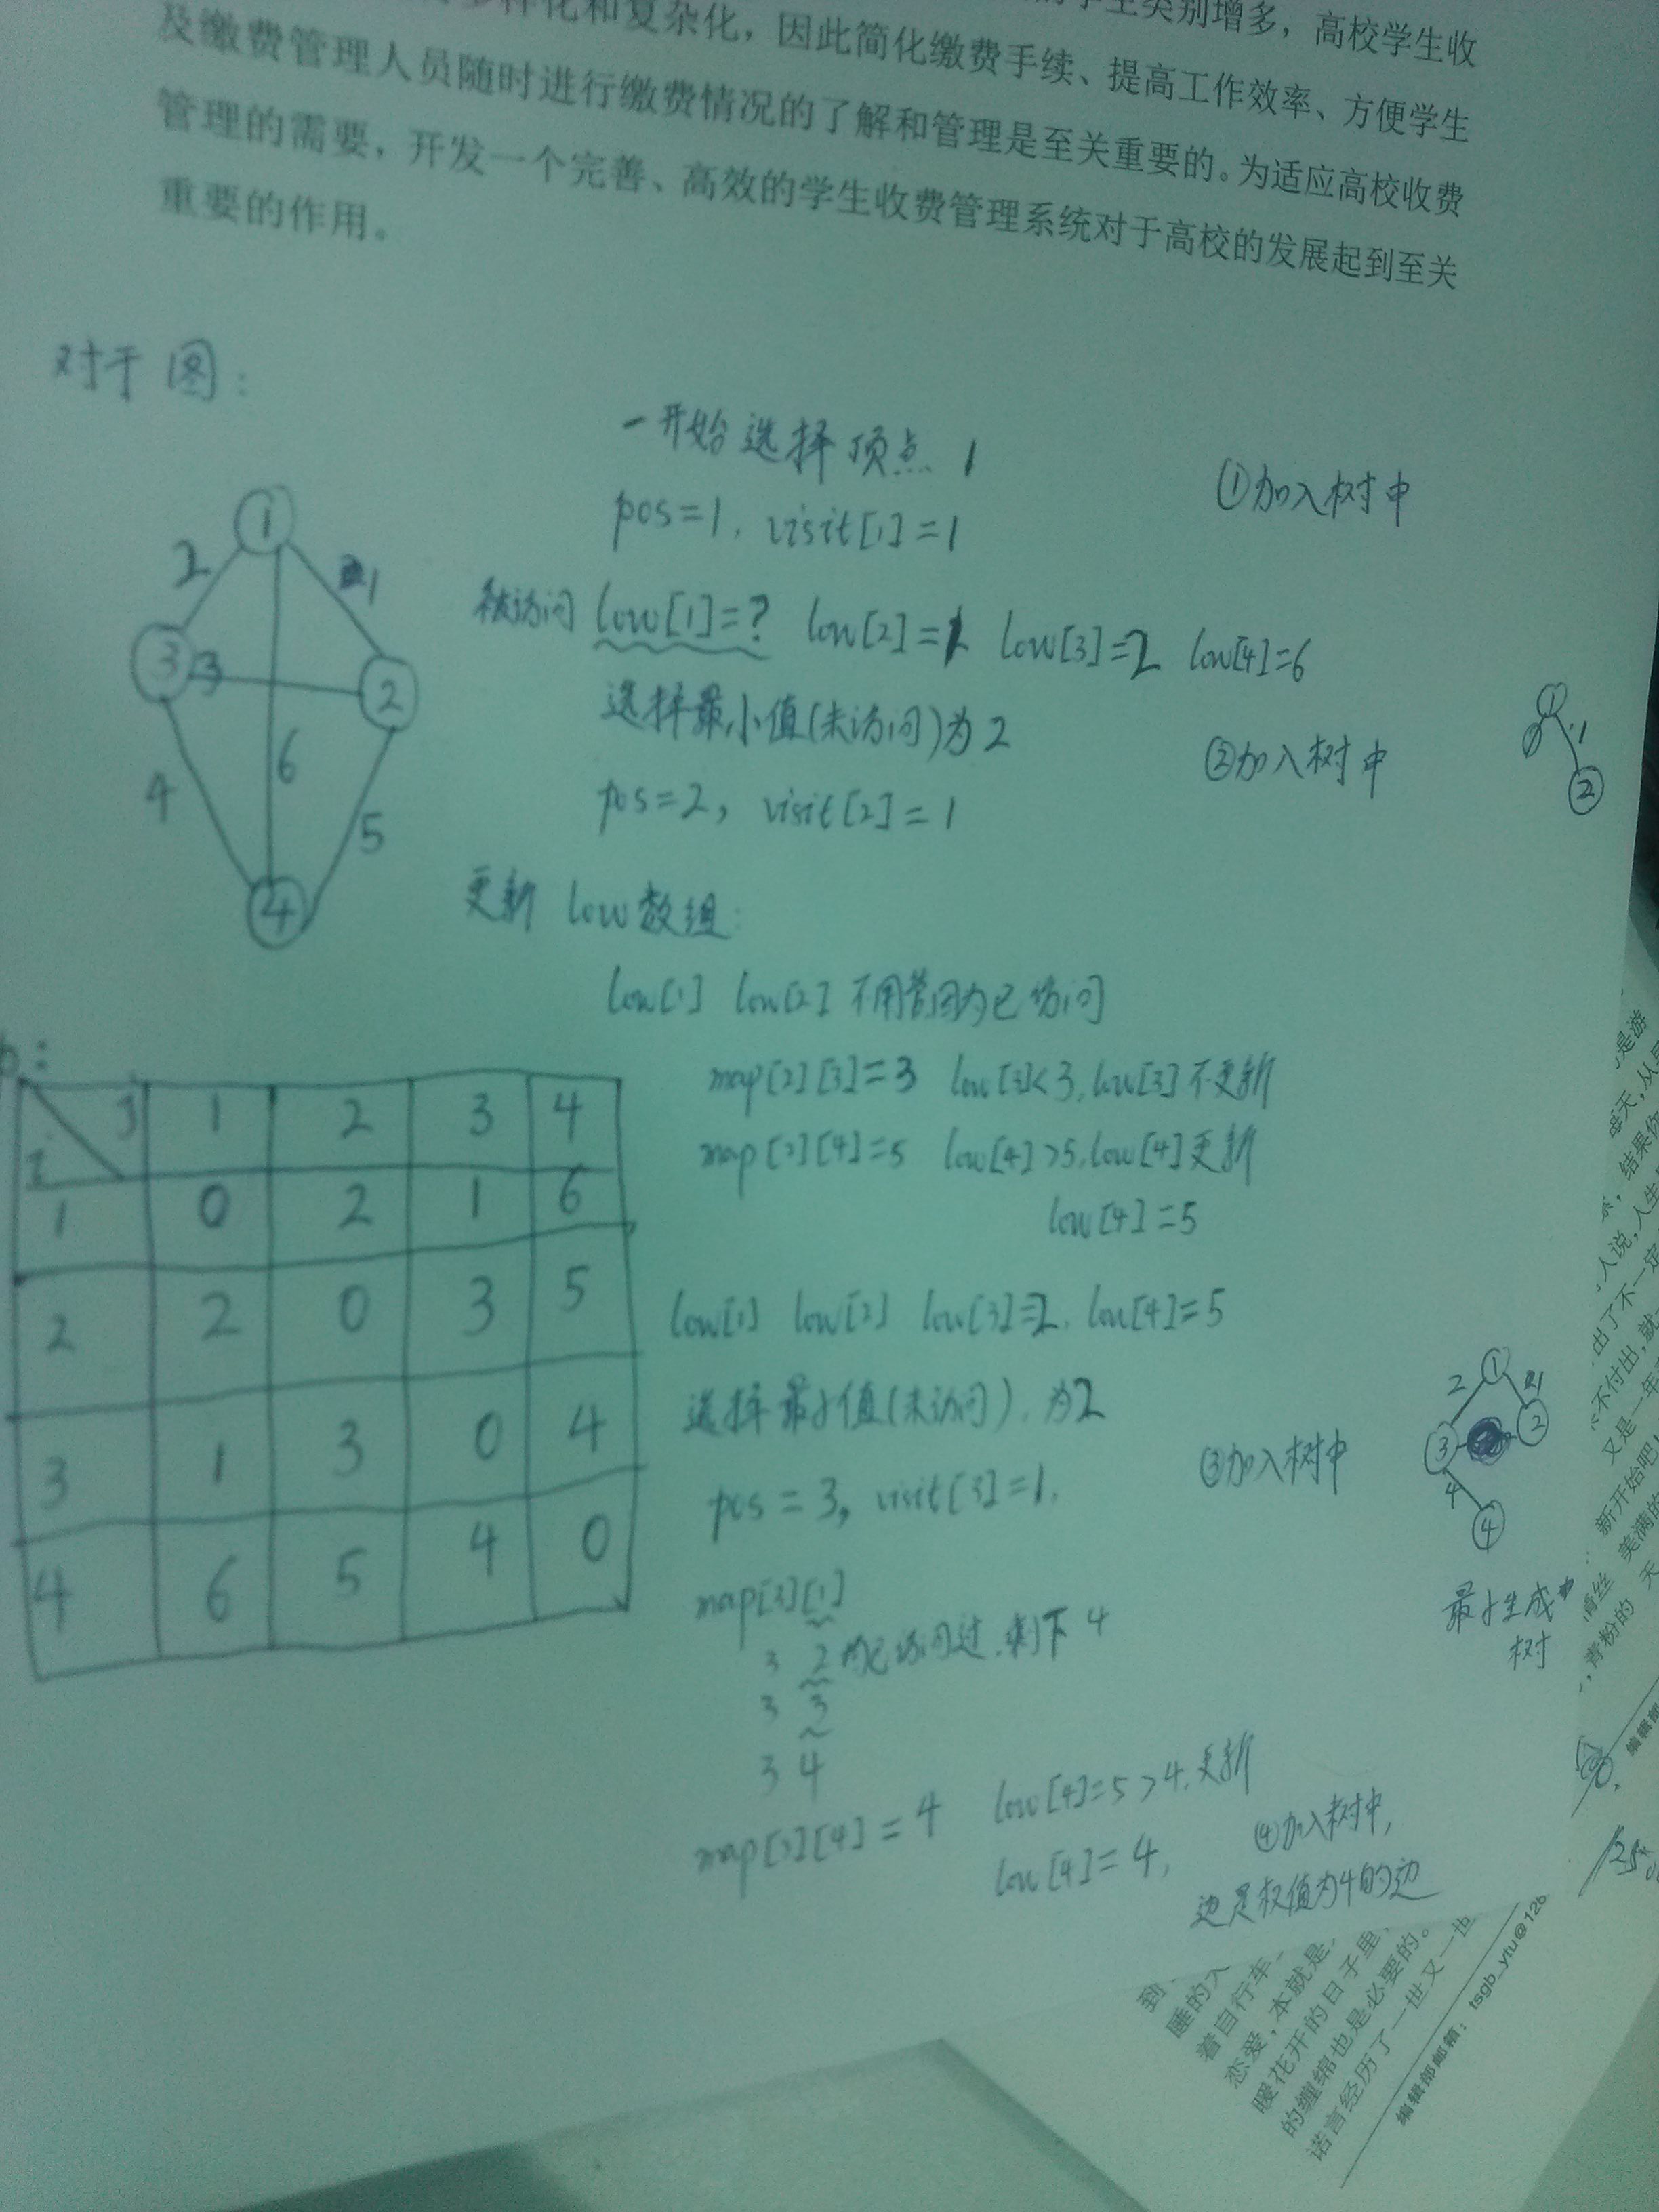 多样化和复杂化，因此简化缴费手续、提高工作效率、方便学生
学生类别增多，高校学生收
及缴费管理人员随时进行缴费情况的了解和管理是至关重要的。为适应高校收费
管理的需要，开发一个完善、高效的学生收费管理系统对于高校的发展起到至关
重要的作用。
对于图：
一开始选择顶点 1
①加入树中
pos=1, visit[1]=1
被访问 low[1]=? low[2]=1 low[3]=2 low[4]=6
选择最小值(未访问)为2
②加入树中
pos=2, visit[2]=1
1
2
1
3
3
2
6
4
5
4
1
1
2
更新 low数组:
low[1] low[2] 不用管因为已访问
map[2][3]=3 low[3]<3, low[3]不更新
map[2][4]=5 low[4]>5, low[4]更新
low[4]=5
low[1] low[2] low[3]=2, low[4]=5
选择最小值(未访问), 为2
pos=3, visit[3]=1,
③加入树中
J 1 2 3 4
I
1 0 2 1 6
2 2 0 3 5
3 1 3 0 4
4 6 5 4 0
1
2 1
3 2
4
4
最小生成
树
map[3][1]
3 2 均已访问过,剩下4
3 3
3 4
map[3][4]=4 low[4]=5>4,更新
low[4]=4,
④加入树中,
边是权值为4的边
出了不一定
不付出，就
又是一年
新开始吧
美满的
青粉的 天
编辑部
到
睡的
着自行车
恋爱，本就是
暖花开的日子里
的缠绵也是必要的。
诺言经历了一世又一世
编辑部邮箱：tsgb_ytu@12